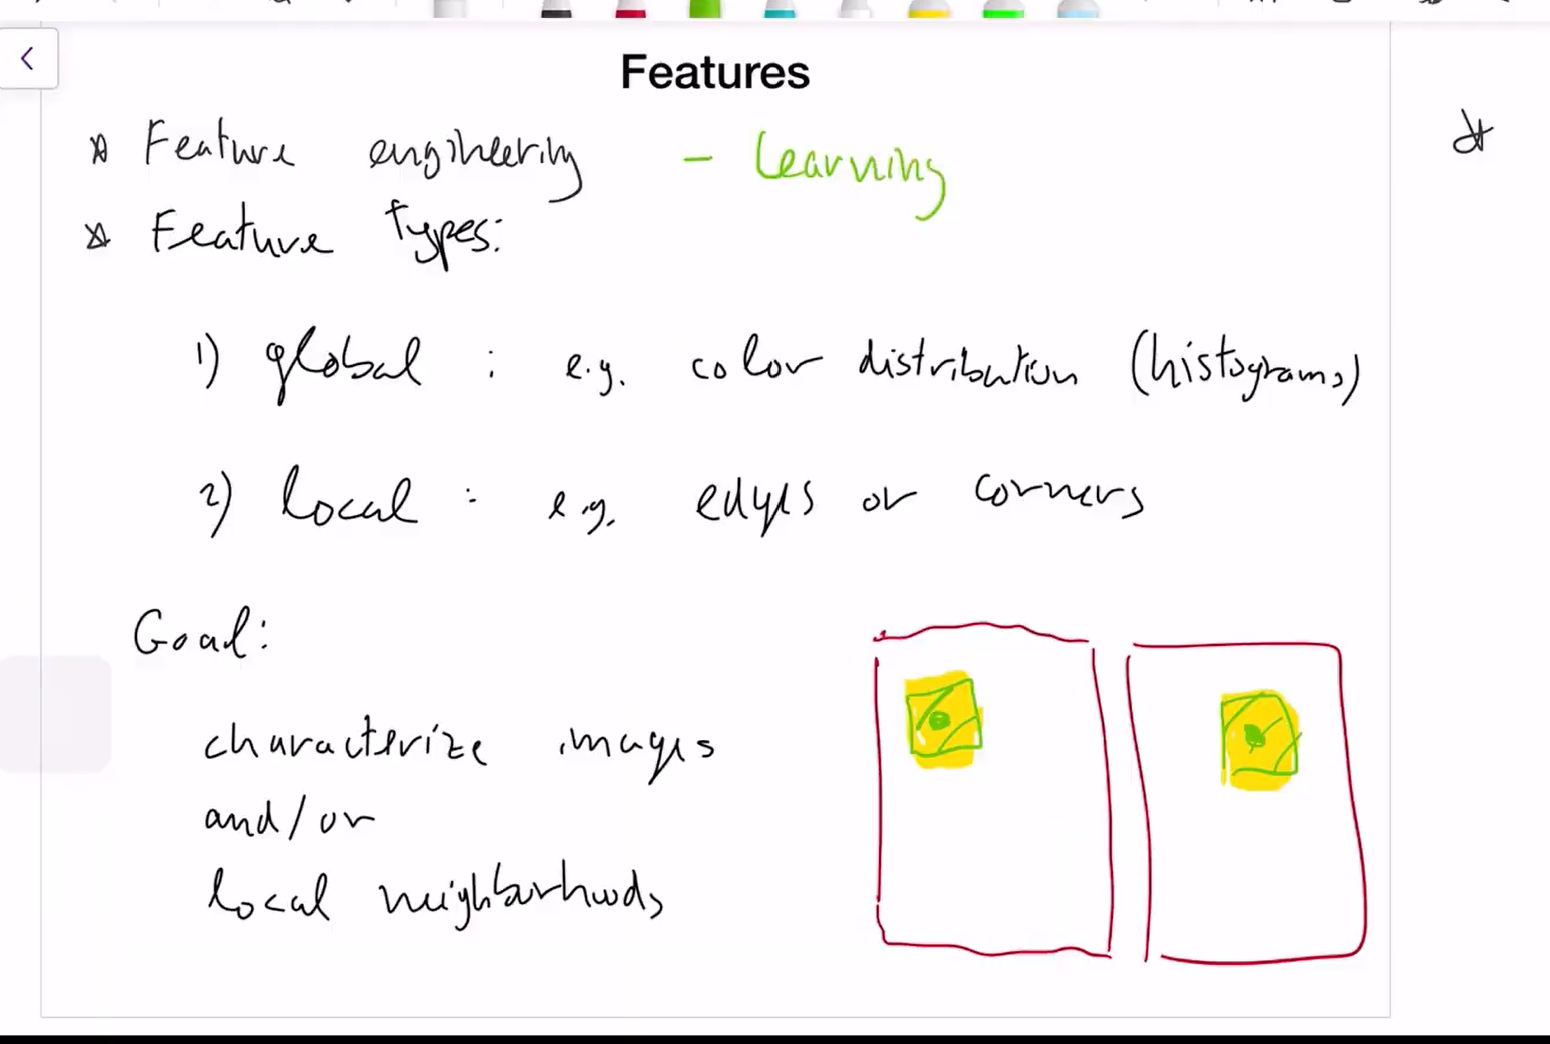 Features
Feature engineering - Learning
Feature types:
1) global : e.g. color distribution (histograms)
2) local : e.g. edges or corners
Goal:
characterize images
and/or
local neighborhoods